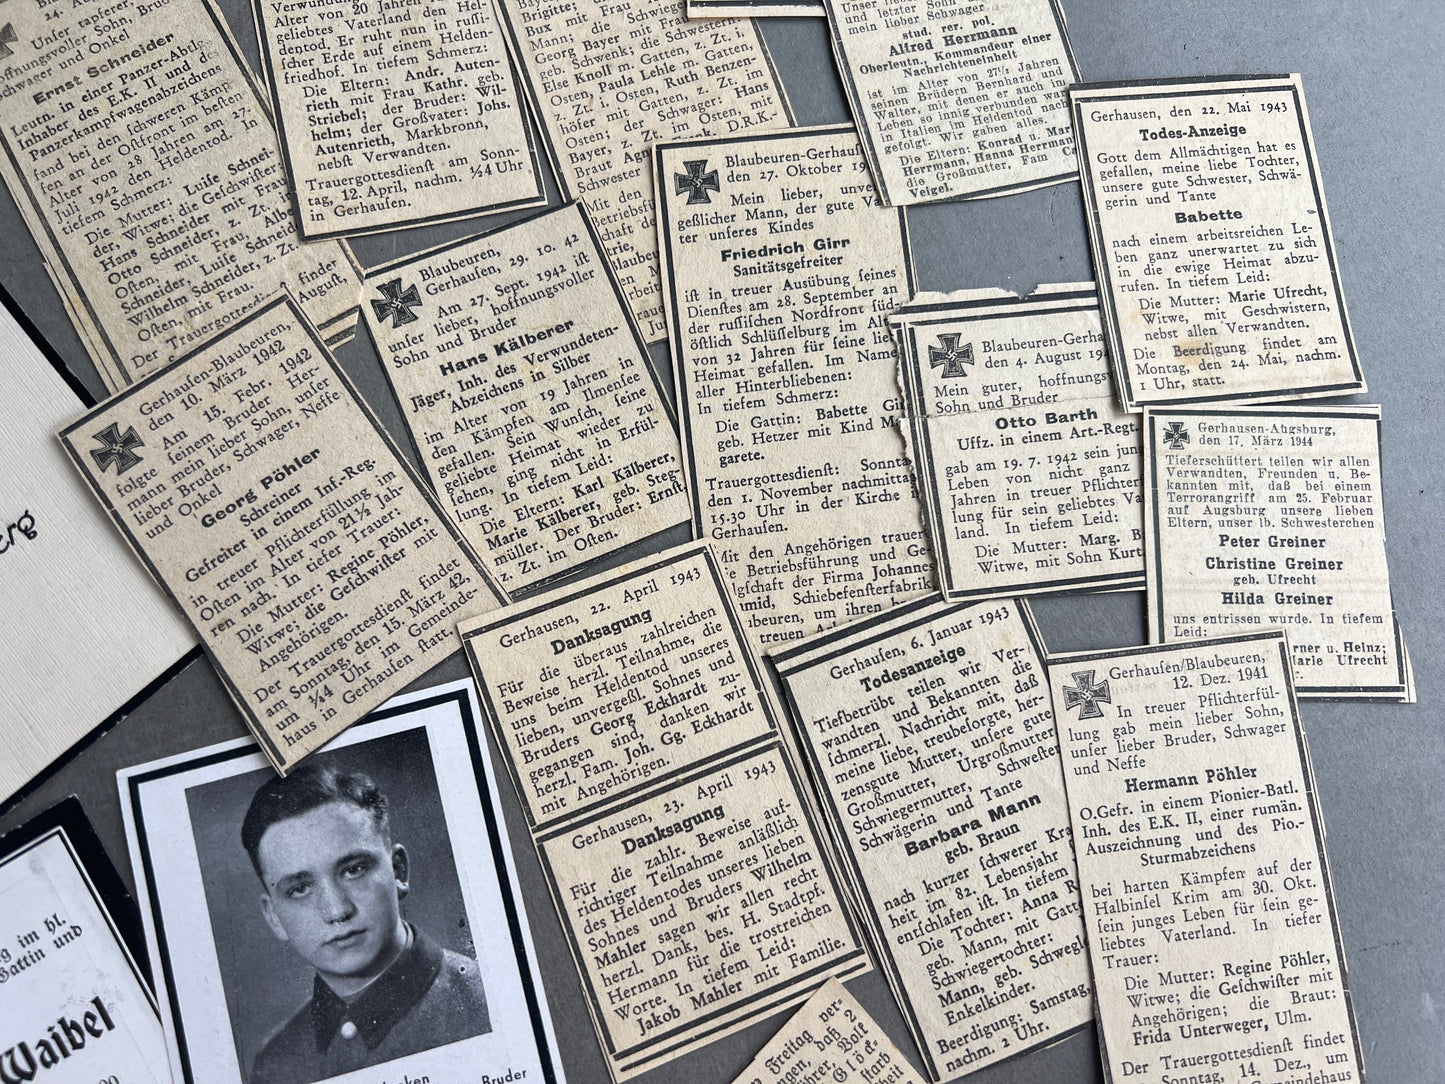 24. Aug
Unser tapferer,
hoffnungsvoller Sohn, Bruder
Schwager und Onkel
Ernst Schneider
Leutn. in einer Panzer-Abtlg.
Inhaber des E.K. II und des
Panzerkampfwagenabzeichens
fand bei den schweren Kämp-
fen an der Ostfront im besten
Alter von 28 Jahren am 27.
Juli 1942 den Heldentod. In
tiefem Schmerz:
Die Mutter: Luise Schnei-
der, Witwe; die Geschwister
Hans Schneider mit Frau
Otto Schneider, z. Zt. i
Osten, mit Frau, Albe
Schneider, Luise Schneid
Wilhelm Schneider, z. Zt.
Osten, mit Frau.
Der Trauergottesdi
findet
August,
Alter von 20 Jahren
geliebtes Vaterland den Hel-
dentod. Er ruht nun in russi-
scher Erde auf einem Helden-
friedhof. In tiefem Schmerz:
Die Eltern: Andr. Auten-
rieth mit Frau Kathr. geb.
Striebel; der Bruder: Wil-
helm; der Großvater: Johs.
Autenrieth, Markbronn,
nebst Verwandten.
Trauergottesdienst am Sonn-
tag, 12. April, nachm. ¼4 Uhr
in Gerhausen.
Brigitte,
Bux mit Frau
Mann; die Schwieger
Georg Bayer mit Frau
geb. Schwenk; die Schwestern
Else Knoll m. Gatten, z. Zt. i.
Osten, Paula Lehle m. Gatten,
z. Zt. i. Osten, Ruth Benzen-
höfer mit Gatten, z. Zt. im
Osten; der Schwager: Hans
Bayer, z. Zt. im Osten, mit
Braut Agn
D.R.K.-
Schwester
Mit den
Betriebsf
Unser lieber
und letzter Sohn
mein lieber Schwager
stud. rer. pol.
Alfred Herrmann
Oberleutn., Kommandeur einer
Nachrichteneinheit
ist im Alter von 27½ Jahren
seinen Brüdern Bernhard und
Walter, mit denen er auch im
Leben so innig verbunden war
in Italien im Heldentod nach
gefolgt. Wir gaben alles.
Die Eltern: Konrad u. Mar
Herrmann, Hanna Herrman
die Großmutter, Fam Ca
Veigel.
Gerhausen, den 22. Mai 1943
Todes-Anzeige
Gott dem Allmächtigen hat es
gefallen, meine liebe Tochter,
unsere gute Schwester, Schwä-
gerin und Tante
Babette
nach einem arbeitsreichen Le-
ben ganz unerwartet zu sich
in die ewige Heimat abzu-
rufen. In tiefem Leid:
Die Mutter: Marie Ufrecht,
Witwe, mit Geschwistern,
nebst allen Verwandten.
Die Beerdigung findet am
Montag, den 24. Mai, nachm.
1 Uhr, statt.
Blaubeuren,
Gerhausen, 29. 10. 42
Am 27. Sept. 1942 ist
unser lieber, hoffnungsvoller
Sohn und Bruder
Hans Kälberer
Jäger, Inh. des Verwundeten-
Abzeichens in Silber
im Alter von 19 Jahren in
den Kämpfen am Ilmensee
gefallen. Sein Wunsch, seine
geliebte Heimat wieder zu
sehen, ging nicht in Erfül-
lung. In tiefem Leid:
Die Eltern: Karl Kälberer,
Marie Kälberer, geb. Steg-
müller. Der Bruder: Ernst,
z. Zt. im Osten.
Blaubeuren-Gerhaus
den 27. Oktober 19
Mein lieber, unver
geßlicher Mann, der gute Va
ter unseres Kindes
Friedrich Girr
Sanitätsgefreiter
ist in treuer Ausübung seines
Dienstes am 28. September an
der russischen Nordfront süd-
östlich Schlüsselburg im Alt
von 32 Jahren für seine lie
Heimat gefallen. Im Name
aller Hinterbliebenen:
In tiefem Schmerz:
Die Gattin: Babette Gi
geb. Hetzer mit Kind M
garete.
Trauergottesdienst: Sonnta
den 1. November nachmittag
15.30 Uhr in der Kirche i
Gerhausen.
Mit den Angehörigen trauer
e Betriebsführung und Ge-
lgschaft der Firma Johannes
mid, Schiebefensterfabrik
ubeuren, um ihren b
treuen
Blaubeuren-Gerha
den 4. August 194
Mein guter, hoffnungsv
Sohn und Bruder
Otto Barth
Uffz. in einem Art.-Regt.
gab am 19. 7. 1942 sein jung
Leben von nicht ganz
Jahren in treuer Pflichter
lung für sein geliebtes Va
land. In tiefem Leid:
Die Mutter: Marg. B
Witwe, mit Sohn Kurt.
Gerhausen-Augsburg,
den 17. März 1944
Tieferschüttert teilen wir allen
Verwandten, Freunden u. Be-
kannten mit, daß bei einem
Terrorangriff am 25. Februar
auf Augsburg unsere lieben
Eltern, unser lb. Schwesterchen
Peter Greiner
Christine Greiner
geb. Ufrecht
Hilda Greiner
uns entrissen wurde. In tiefem
Leid:
rner u. Heinz;
Marie Ufrecht
Gerhausen-Blaubeuren,
den 10. März 1942
Am 15. Febr. 1942
folgte seinem Bruder Her-
mann mein lieber Sohn, unser
lieber Bruder, Schwager, Neffe
und Onkel
Georg Pöhler
Schreiner
Gefreiter in einem Inf.-Reg.
in treuer Pflichterfüllung im
Osten im Alter von 21½ Jah-
ren nach. In tiefer Trauer:
Die Mutter: Regine Pöhler,
Witwe; die Geschwister mit
Angehörigen.
Der Trauergottesdienst findet
am Sonntag, den 15. März 42,
um ¼4 Uhr im Gemeinde-
haus in Gerhausen statt.
Gerhausen, 22. April 1943
Danksagung
Für die überaus zahlreichen
Beweise herzl. Teilnahme, die
uns beim Heldentod unseres
lieben, unvergeßl. Sohnes und
Bruders Georg Eckhardt zu-
gegangen sind, danken wir
herzl. Fam. Joh. Gg. Eckhardt
mit Angehörigen.
Gerhausen, 23. April 1943
Danksagung
Für die zahlr. Beweise auf-
richtiger Teilnahme anläßlich
des Heldentodes unseres lieben
Sohnes und Bruders Wilhelm
Mahler sagen wir allen recht
herzl. Dank, bes. H. Stadtpf.
Hermann für die trostreichen
Worte. In tiefem Leid:
Jakob Mahler mit Familie.
Gerhausen, 6. Januar 1943
Todesanzeige
Tiefbetrübt teilen wir Ver-
wandten und Bekannten die
schmerzl. Nachricht mit, daß
meine liebe, treubesorgte, her-
zensgute Mutter, unsere gute
Großmutter, Urgroßmutter
Schwiegermutter, Schwester
Schwägerin und Tante
Barbara Mann
geb. Braun
nach kurzer schwerer Kra
heit im 82. Lebensjahr
entschlafen ist. In tiefem
Die Tochter: Anna R
geb. Mann, mit Gatt
Schwiegertochter:
Mann, geb. Schwegl
Enkelkinder.
Beerdigung: Samstag,
nachm. 2 Uhr.
Gerhausen/Blaubeuren,
12. Dez. 1941
In treuer Pflichterfül-
lung gab mein lieber Sohn,
unser lieber Bruder, Schwager
und Neffe
Hermann Pöhler
O.Gefr. in einem Pionier-Batl.
Inh. des E.K. II, einer rumän.
Auszeichnung und des Pio.-
Sturmabzeichens
bei harten Kämpfen auf der
Halbinsel Krim am 30. Okt.
sein junges Leben für sein ge-
liebtes Vaterland. In tiefer
Trauer:
Die Mutter: Regine Pöhler,
Witwe; die Geschwister mit
Angehörigen; die Braut:
Frida Unterweger, Ulm.
Der Trauergottesdienst findet
Sonntag, 14. Dez., um
Gemeindehaus
erg
g im hl.
Gattin und
Waibel
Bruder
Freitag ver-
daß 2